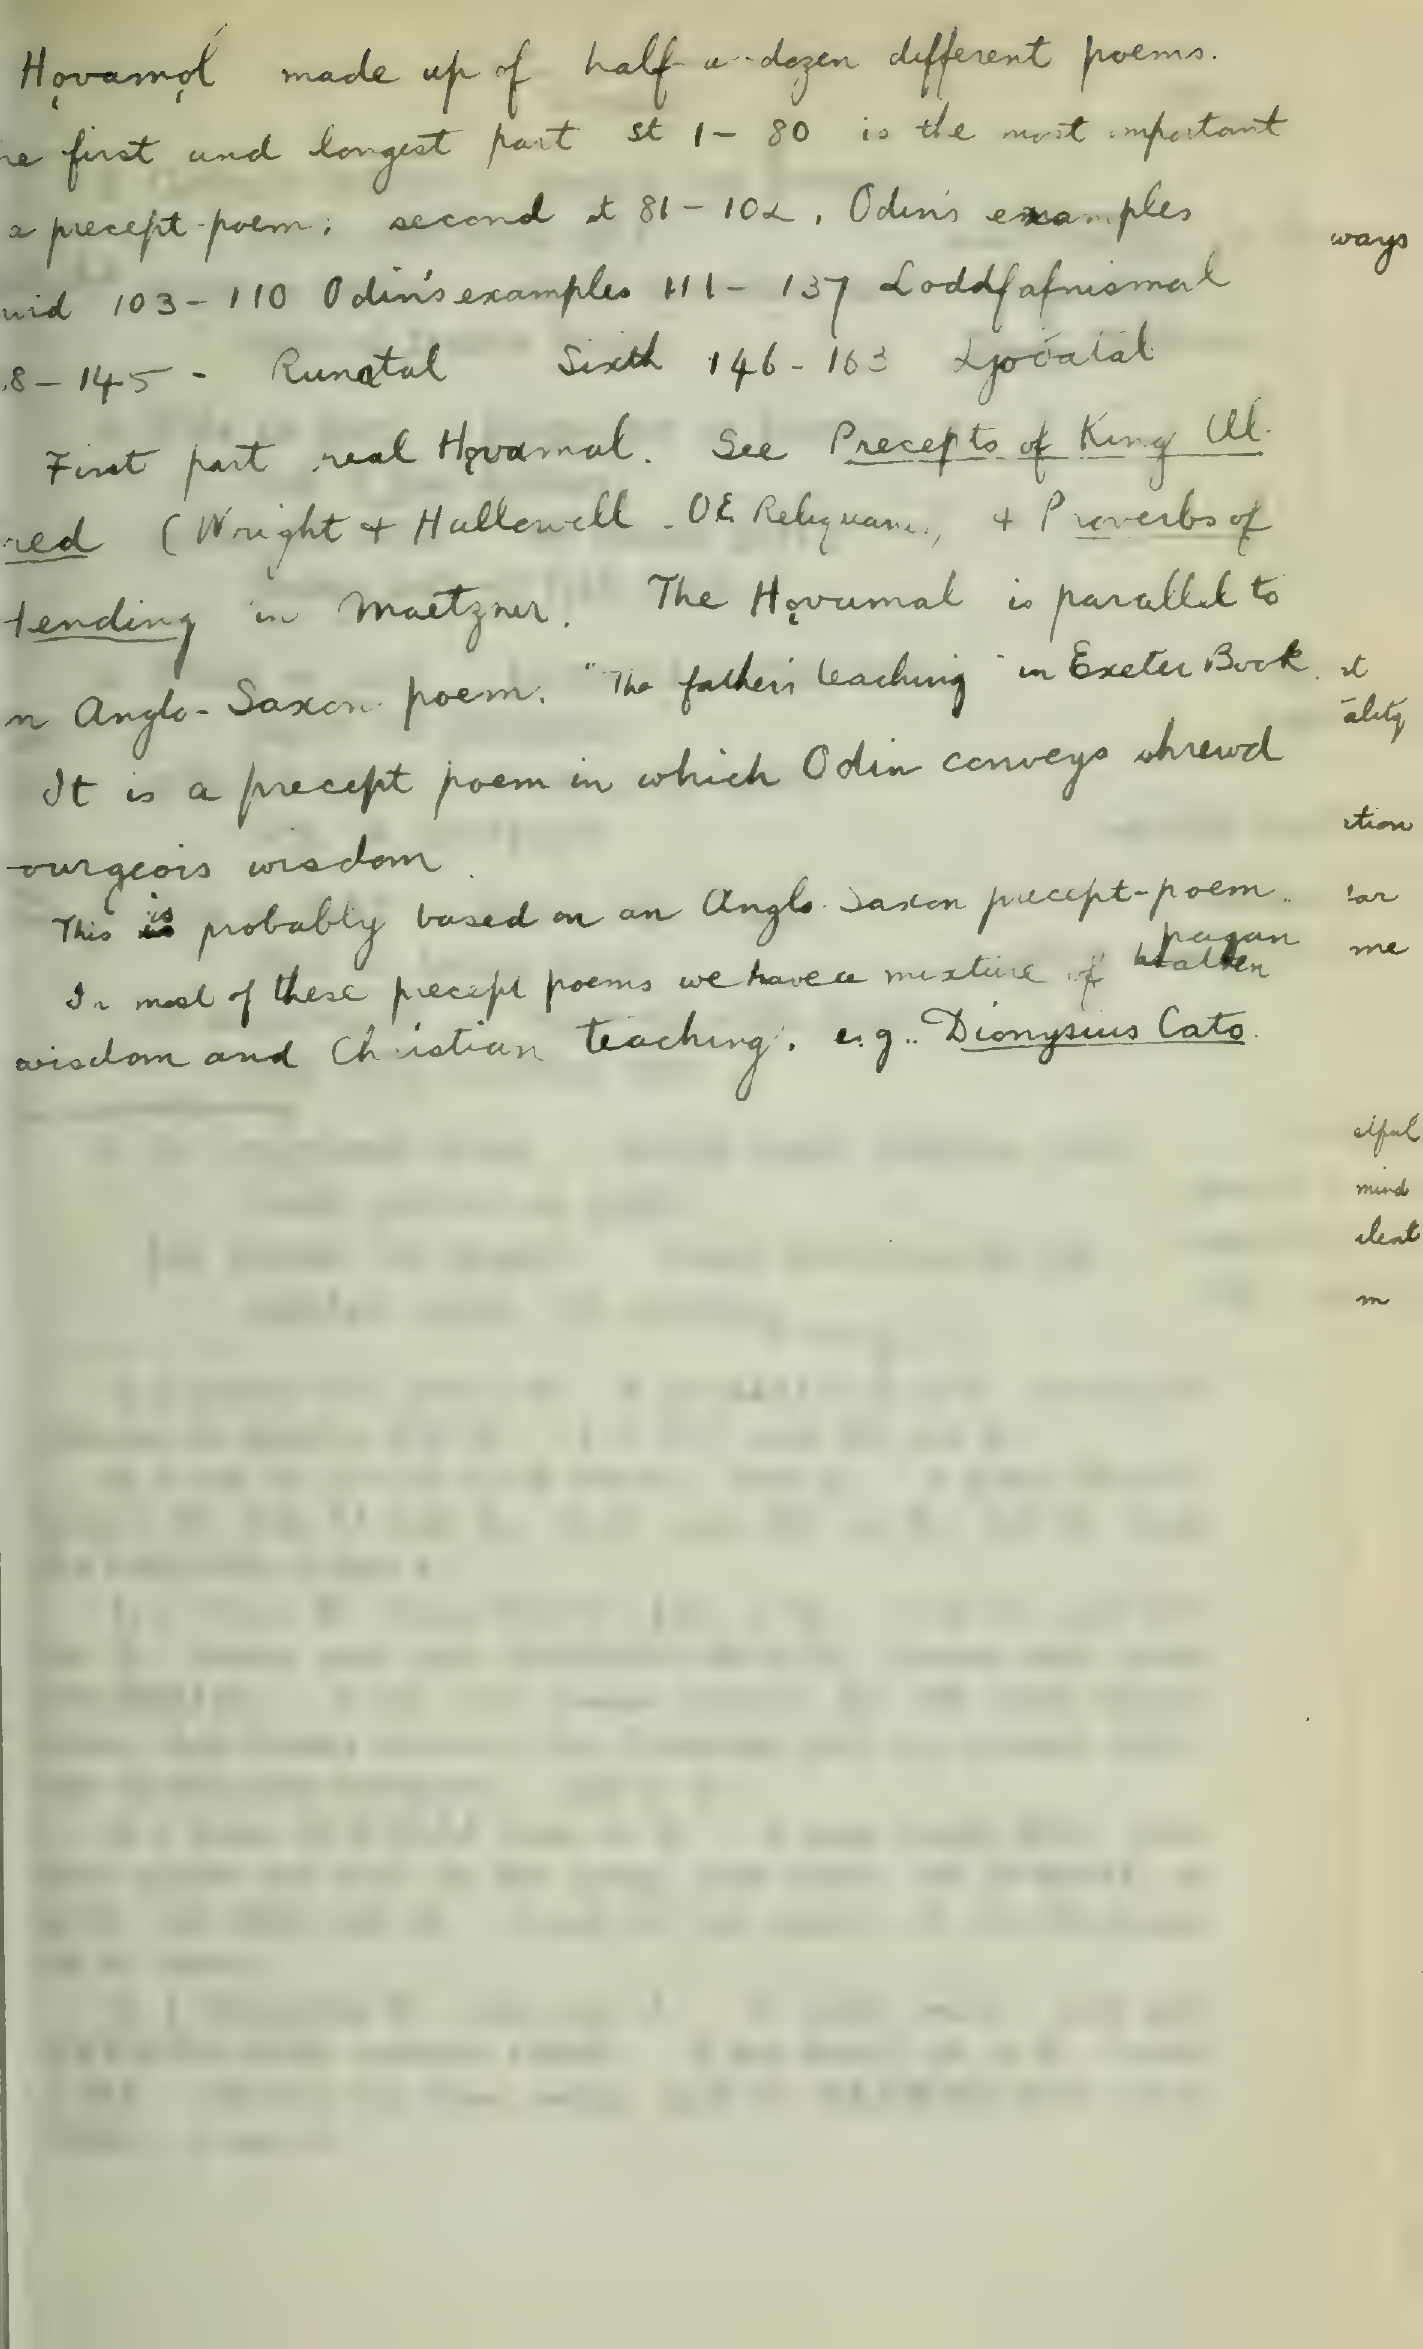 Hǫvamǫl made up of half-a-dozen different poems.
he first and longest part st 1 - 80 is the most important
a precept-poem; second st 81 - 102. Odin's examples
103 - 110 Odin's examples 111 - 137 Loddfafnismal
8 - 145 - Runatal Sixth 146 - 163 Ljóðatál
First part real Hǫvamal. See Precepts of King Al-
red (Wright + Hallowell - OE Reliquane, + Proverbs of
tending in Maetzner. The Hǫvamal is parallel to
n Anglo-Saxon poem. "The father's teaching" in Exeter Book.
It is a precept poem in which Odin conveys shrewd
ourgeois wisdom.
This is probably based on an Anglo-Saxon precept-poem.
pagan
In most of these precept poems we have a mixture of heathen
wisdom and Christian teaching. e.g. Dionysius Cato.
ways
st
ality
ition
lar
me
elful
mind
m